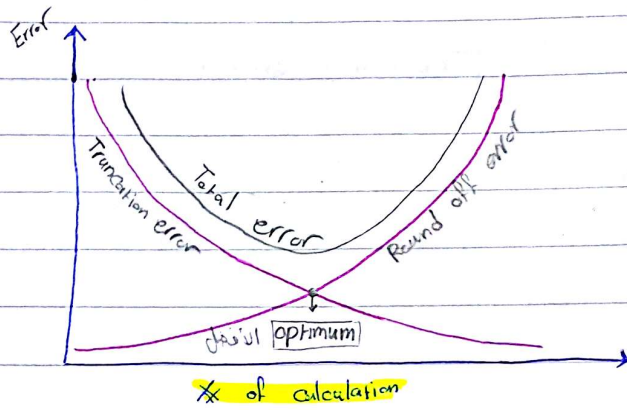 Error
Truncation error
Total error
Round off error
الافضل optimum
# of calculation